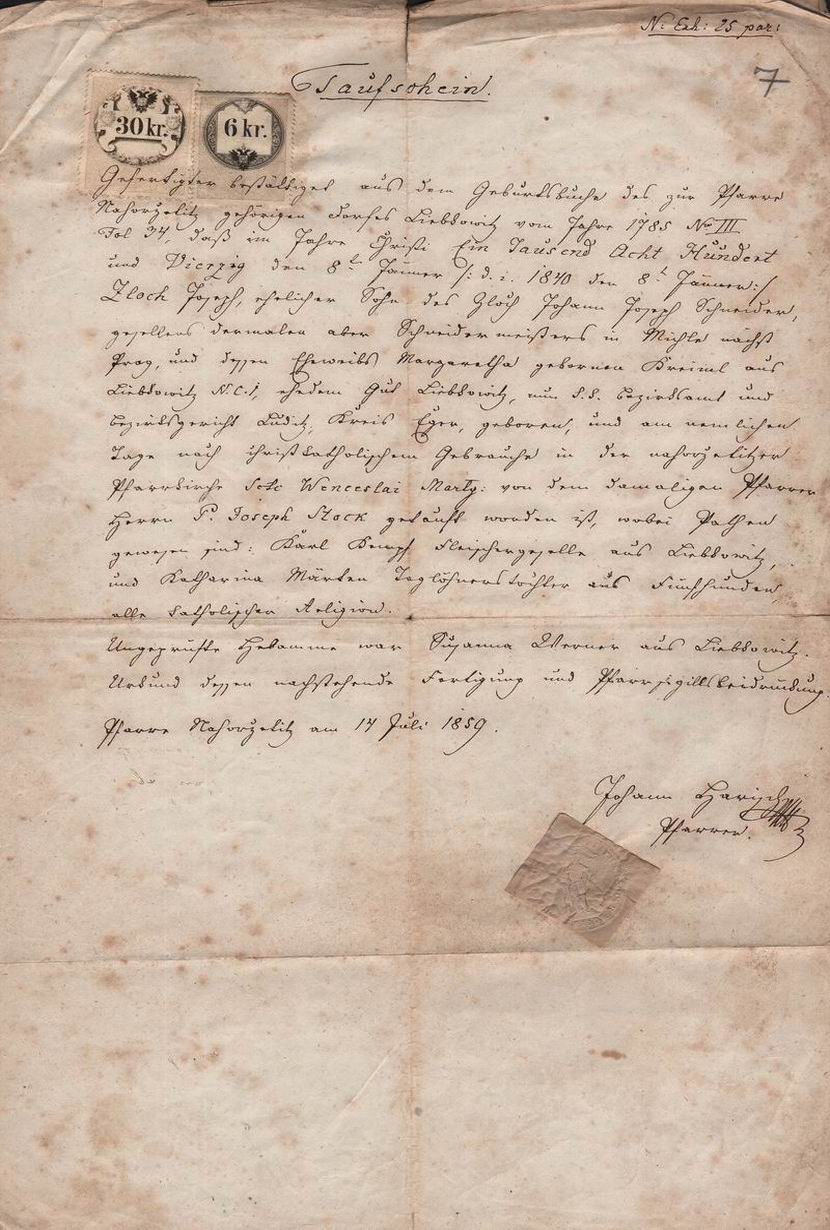 N: Exh: 25 par:
7
Taufschein.
30 kr.
6 kr.
Gefertigter bestättiget aus dem Geburtsbuche des zur Pfarre
Nahorzetitz gehörigen Dorfes Liebkowitz vom Jahre 1785 No III
Fol 34, daß im Jahre Christi Ein Tausend Acht Hundert
und Vierzig den 8t Jänner /: d. i. 1840 den 8t Jänner :/
Zloch Joseph, ehelicher Sohn des Zloch Johann Joseph Schneider,
gesellens dermalen aber Schneidermeisters in Michle nächst
Prag, und dessen Eheweibs Margaretha gebornen Kreiml aus
Liebkowitz N.C. 1, ehedem Gut Liebkowitz, nun k.k. Bezirksamt und
Bezirksgericht Luditz, Kreis Eger, geboren, und am nemlichen
Tage nach christkatholischem Gebrauche in der nahorzetitzer
Pfarrkirche Scti Wenceslai Marty: von dem damaligen Pfarrer
Herrn P. Joseph Stock getauft worden ist, wobei Pathen
gewesen sind: Karl Kempf Fleischergeselle aus Liebkowitz,
und Katharina Märten Taglöhnerstochter aus Fünfhunden,
alle katholischer Religion.
Ungeprüfte Hebamme war Susanna Werner aus Liebkowitz.
Urkund dessen nachstehende Fertigung und Pfarrsigillsbeidrückung.
Pfarre Nahorzetitz am 14 Juli 1859.
Johann Harisch
Pfarrer.